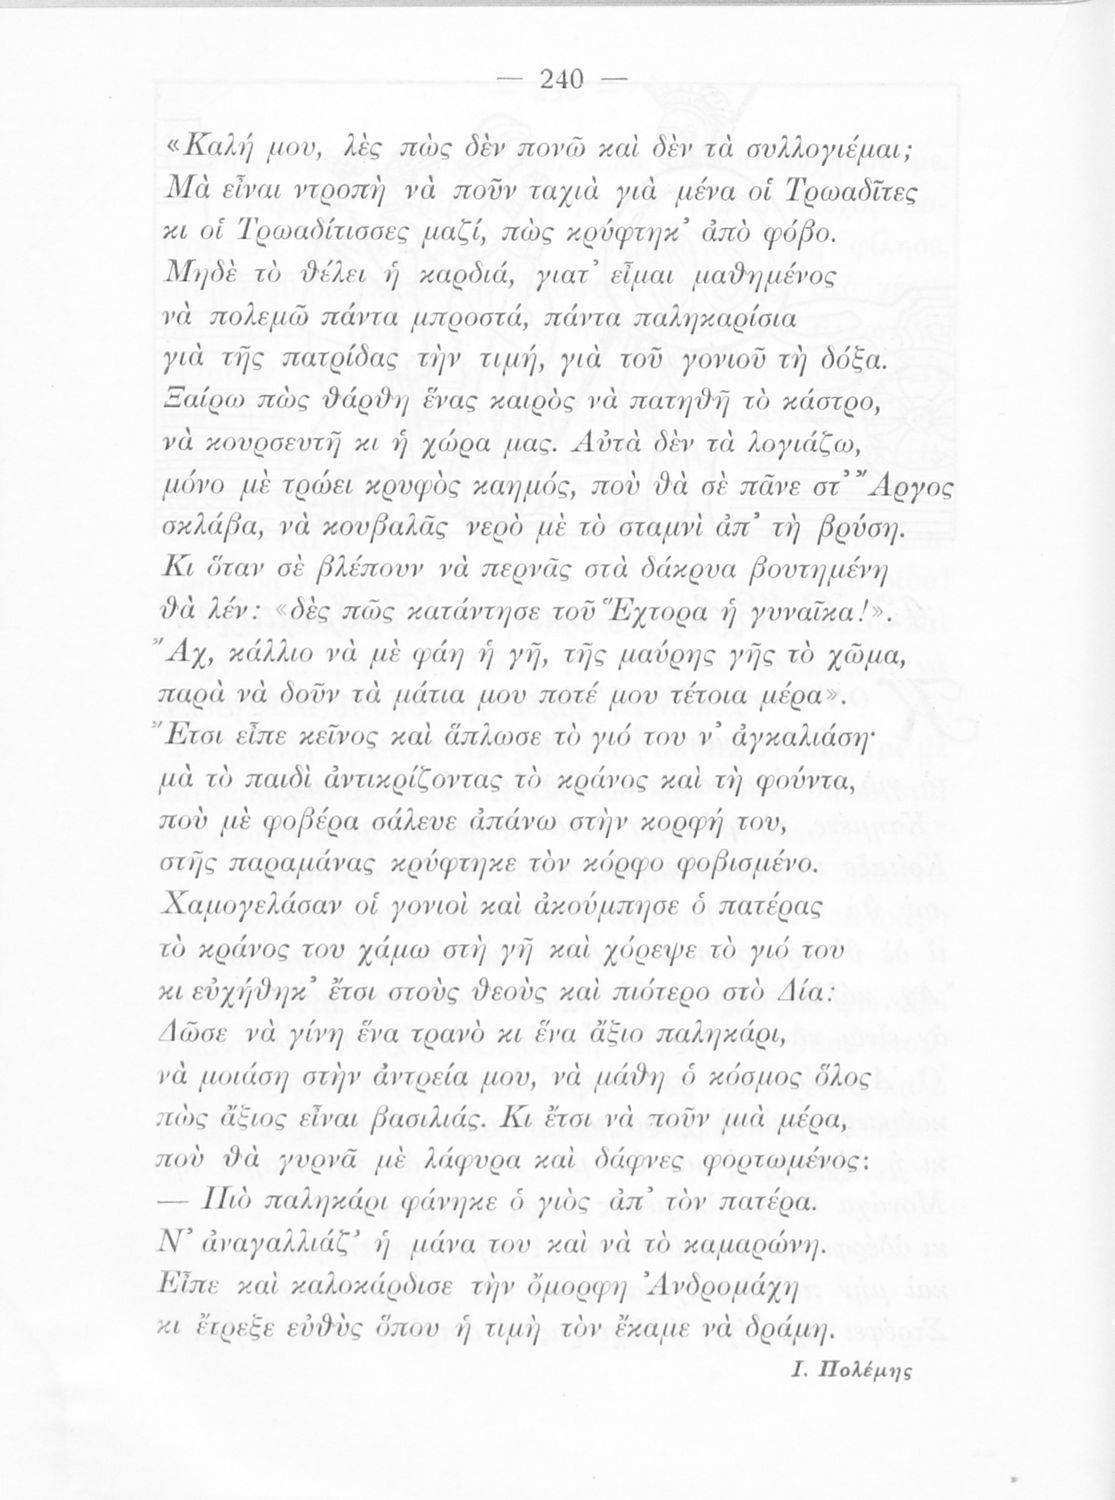 — 240 —
«Καλή μου, λὲς πὼς δὲν πονῶ καὶ δὲν τὰ συλλογιέμαι;
Μὰ εἶναι ντροπὴ νὰ ποῦν ταχιὰ γιὰ μένα οἱ Τρωαδῖτες
κι οἱ Τρωαδίτισσες μαζί, πὼς κρύφτηκ᾿ ἀπὸ φόβο.
Μηδὲ τὸ θέλει ἡ καρδιά, γιατ᾿ εἶμαι μαθημένος
νὰ πολεμῶ πάντα μπροστά, πάντα παληκαρίσια
γιὰ τῆς πατρίδας τὴν τιμή, γιὰ τοῦ γονιοῦ τὴ δόξα.
Ξαίρω πὼς θάρθη ἕνας καιρὸς νὰ πατηθῆ τὸ κάστρο,
νὰ κουρσευτῆ κι ἡ χώρα μας. Αὐτὰ δὲν τὰ λογιάζω,
μόνο μὲ τρώει κρυφὸς καημός, ποὺ θὰ σὲ πᾶνε στ᾿ Ἄργος
σκλάβα, νὰ κουβαλᾶς νερὸ μὲ τὸ σταμνὶ ἀπ᾿ τὴ βρύση.
Κι ὅταν σὲ βλέπουν νὰ περνᾶς στὰ δάκρυα βουτημένη
θὰ λέν: «δὲς πῶς κατάντησε τοῦ Ἕχτορα ἡ γυναῖκα!».
Ἄχ, κάλλιο νὰ μὲ φάη ἡ γῆ, τῆς μαύρης γῆς τὸ χῶμα,
παρὰ νὰ δοῦν τὰ μάτια μου ποτέ μου τέτοια μέρα».
Ἔτσι εἶπε κεῖνος καὶ ἅπλωσε τὸ γιό του ν᾿ ἀγκαλιάση·
μὰ τὸ παιδὶ ἀντικρίζοντας τὸ κράνος καὶ τὴ φούντα,
ποὺ μὲ φοβέρα σάλευε ἀπάνω στὴν κορφή του,
στῆς παραμάνας κρύφτηκε τὸν κόρφο φοβισμένο.
Χαμογελάσαν οἱ γονιοὶ καὶ ἀκούμπησε ὁ πατέρας
τὸ κράνος του χάμω στὴ γῆ καὶ χόρεψε τὸ γιό του
κι εὐχήθηκ᾿ ἔτσι στοὺς θεοὺς καὶ πιότερο στὸ Δία:
Δῶσε νὰ γίνη ἕνα τρανὸ κι ἕνα ἄξιο παληκάρι,
νὰ μοιάση στὴν ἀντρεία μου, νὰ μάθη ὁ κόσμος ὅλος
πὼς ἄξιος εἶναι βασιλιάς. Κι ἔτσι νὰ ποῦν μιὰ μέρα,
ποὺ θὰ γυρνᾶ μὲ λάφυρα καὶ δάφνες φορτωμένος:
— Πιὸ παληκάρι φάνηκε ὁ γιὸς ἀπ᾿ τὸν πατέρα.
Ν᾿ ἀναγαλλιάζ᾿ ἡ μάνα του καὶ νὰ τὸ καμαρώνη.
Εἶπε καὶ καλοκάρδισε τὴν ὄμορφη Ἀνδρομάχη
κι ἔτρεξε εὐθὺς ὅπου ἡ τιμὴ τὸν ἔκαμε νὰ δράμη.
Ι. Πολέμης